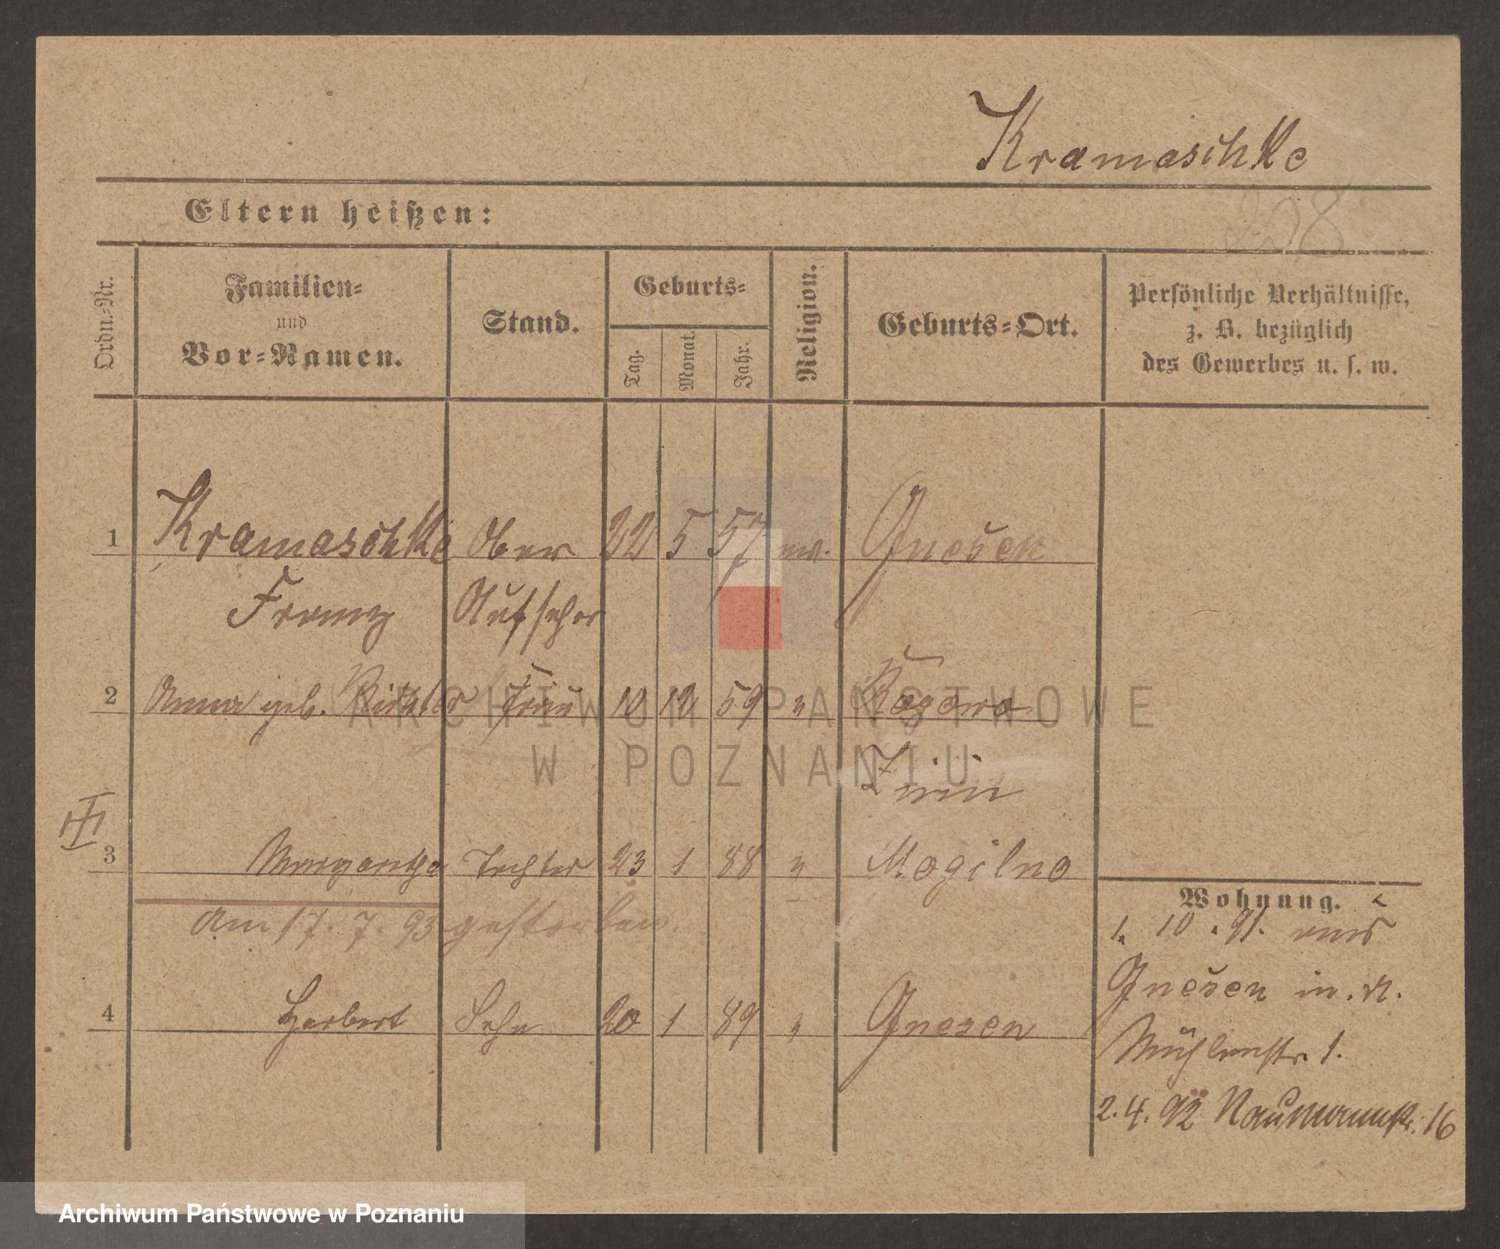 Kramaschke
228
Eltern heißen:
Ordn.-Nr.
Familien-
und
Vor-Namen.
Stand.
Geburts-
Tag.
Monat.
Jahr.
Religion.
Geburts-Ort.
Persönliche Verhältnisse,
z. B. bezüglich
des Gewerbes u. s. w.
1 Kramaschke Ober 22 5 57 ev. Gnesen
Franz Aufseher
2 Anna geb. Richter Frau 10 12 59 "
ARCHIWUM PAŃSTWOWE
W POZNANIU
Znin
3 Margaretha Tochter 23 1 88 " Mogilno
Am 17. 7. 93 gestorben
4 Herbert Sohn 20 1 89 " Gnesen
Wohnung.
1. 10. 91. aus
Gnesen in. n.
Mühlenstr 1.
2. 4. 92 Naumannstr. 16
Archiwum Państwowe w Poznaniu